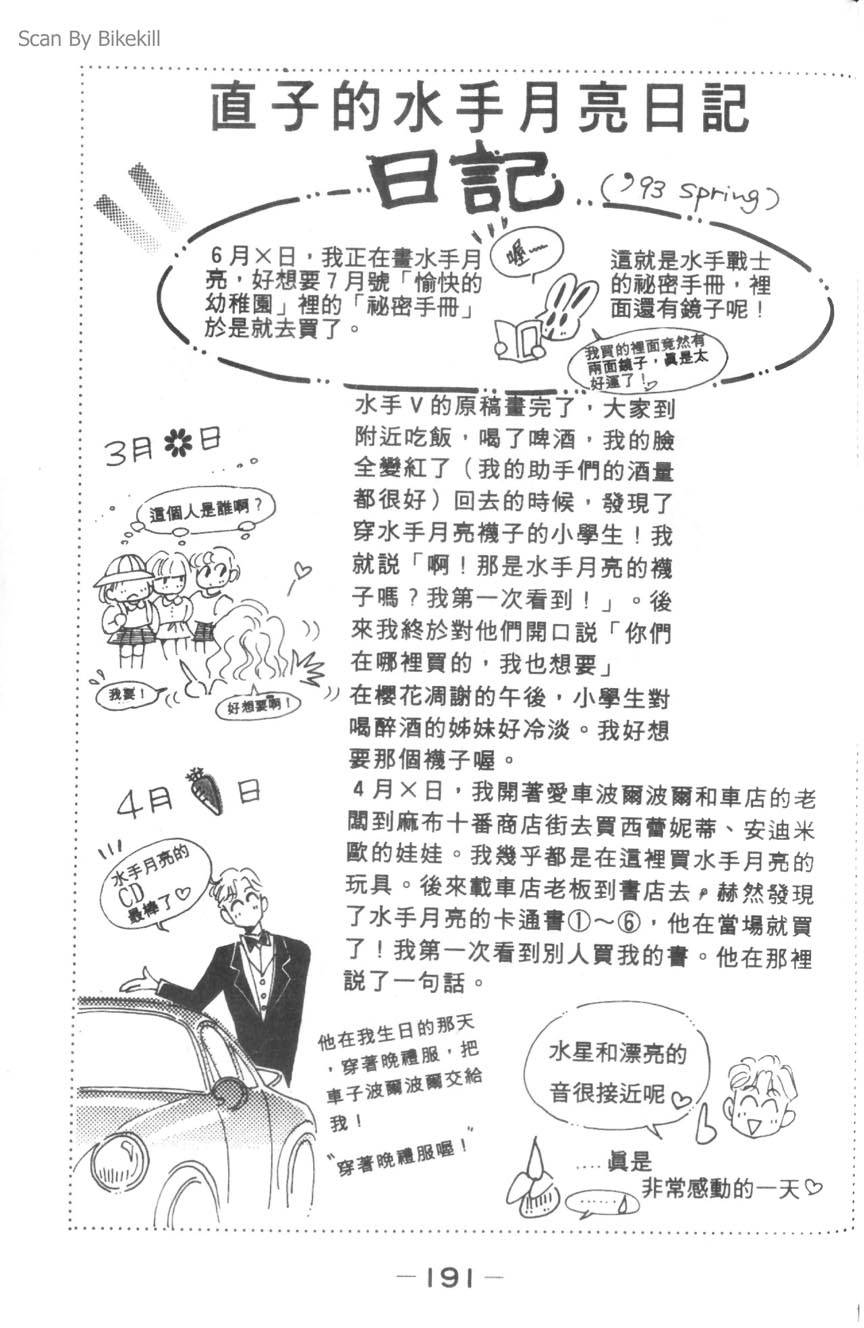 Scan By Bikekill
直子的水手月亮日記
日記
('93 spring)
6月×日，我正在畫水手月
亮，好想要7月號「愉快的
幼稚園」裡的「祕密手冊」
於是就去買了。
喔~~
這就是水手戰士
的祕密手冊，裡
面還有鏡子呢！
我買的裡面竟然有
兩面鏡子，眞是太
好運了！♡
3月❁日
這個人是誰啊？
我要！
好想要啊！
水手V的原稿畫完了，大家到
附近吃飯，喝了啤酒，我的臉
全變紅了（我的助手們的酒量
都很好）回去的時候，發現了
穿水手月亮襪子的小學生！我
就説「啊！那是水手月亮的襪
子嗎？我第一次看到！」。後
來我終於對他們開口説「你們
在哪裡買的，我也想要」
在櫻花凋謝的午後，小學生對
喝醉酒的姊妹好冷淡。我好想
要那個襪子喔。
4月 日
水手月亮的
CD
最棒了♡
4月×日，我開著愛車波爾波爾和車店的老
闆到麻布十番商店街去買西蕾妮蒂、安迪米
歐的娃娃。我幾乎都是在這裡買水手月亮的
玩具。後來載車店老板到書店去，赫然發現
了水手月亮的卡通書①～⑥，他在當場就買
了！我第一次看到別人買我的書。他在那裡
説了一句話。
他在我生日的那天
，穿著晚禮服，把
車子波爾波爾交給
我！
"穿著晚禮服喔！"
水星和漂亮的
音很接近呢♡
‥‥眞是
非常感動的一天♡
……
—191—